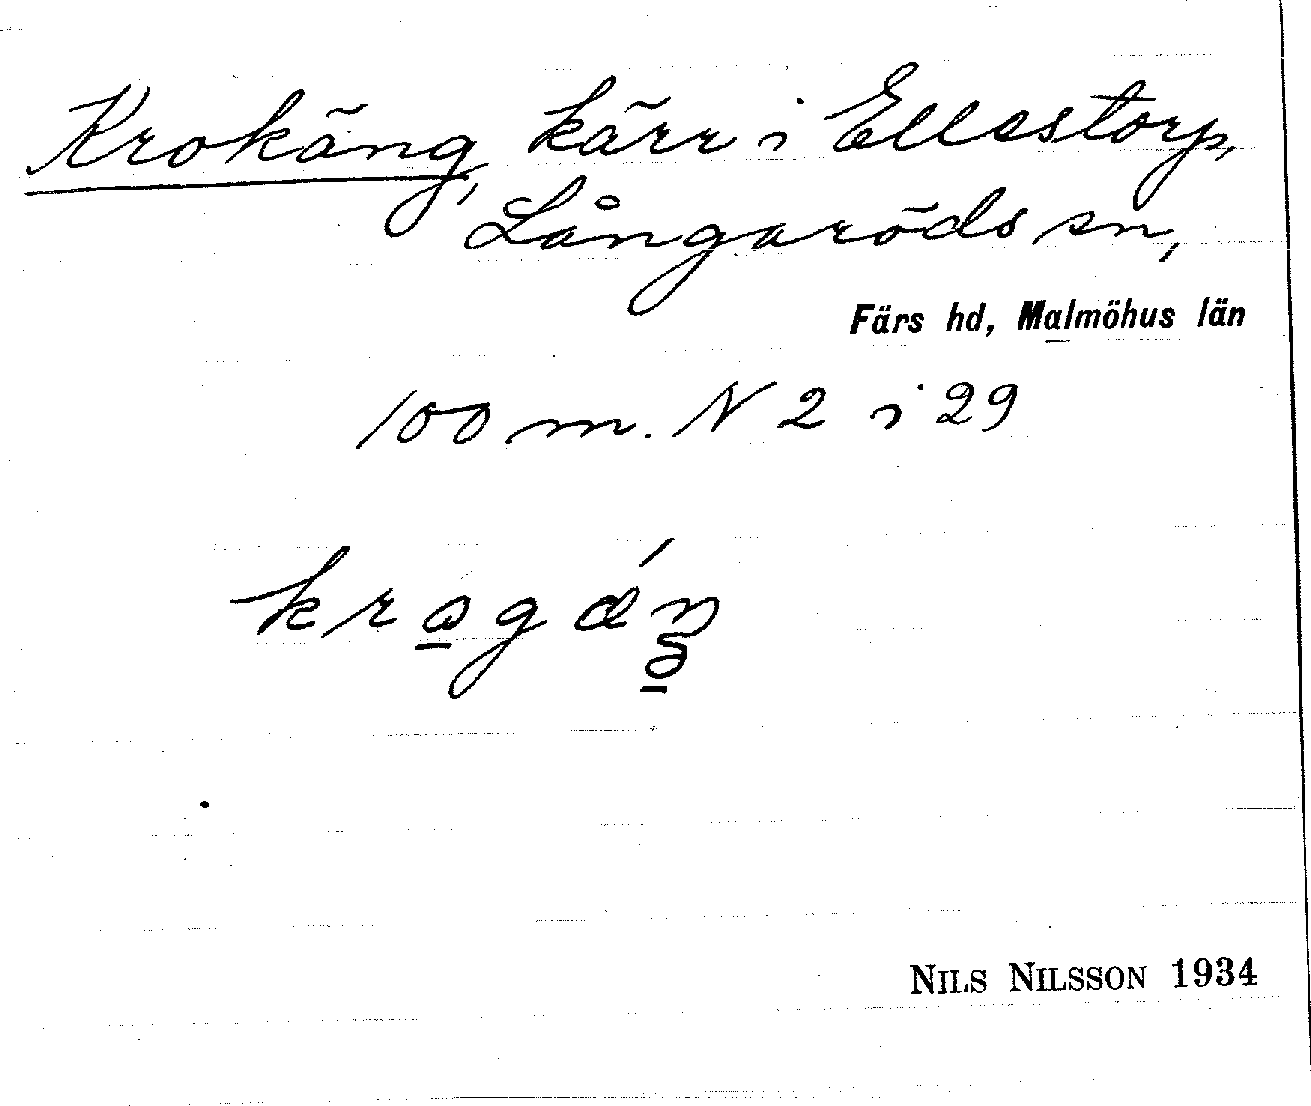 Krokäng, kärr i Ellestorp,
Långaröds sn,
Färs hd, Malmöhus län
100 m. N 2 i 29
NILS NILSSON 1934